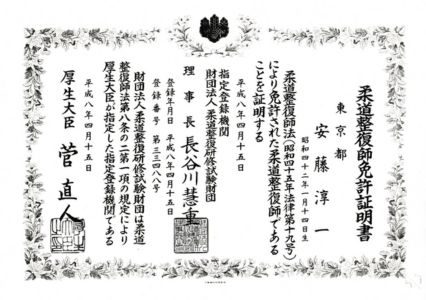 柔道整復師免許証明書
東京都
安藤淳一
昭和四十二年一月十四日生
柔道整復師法(昭和四十五年法律第十九号)
により免許された柔道整復師である
ことを証明する
平成八年四月十五日
指定登録機関
財団法人 柔道整復研修試験財団
理事長 長谷川慧重
登録年月日 平成八年四月十五日
登録番号 第三三四八八号
財団法人柔道整復研修試験財団は柔道
整復師法第八条の二第一項の規定により
厚生大臣が指定した指定登録機関である
平成八年四月十五日
厚生大臣 菅直人